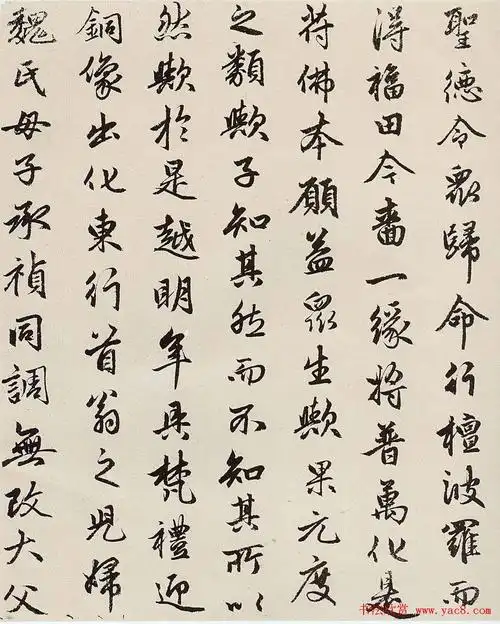 聖德令眾歸命行檀波羅而
得福田今嗇一緣將普萬化是
符佛本願益眾生歟果元度
之類歟子知其然而不知其所以
然歟於是越明年具梵禮迎
銅像出化東行首翁之兒婦
魏氏母子承禎同調無改大父
书法欣赏 www.yac8.com